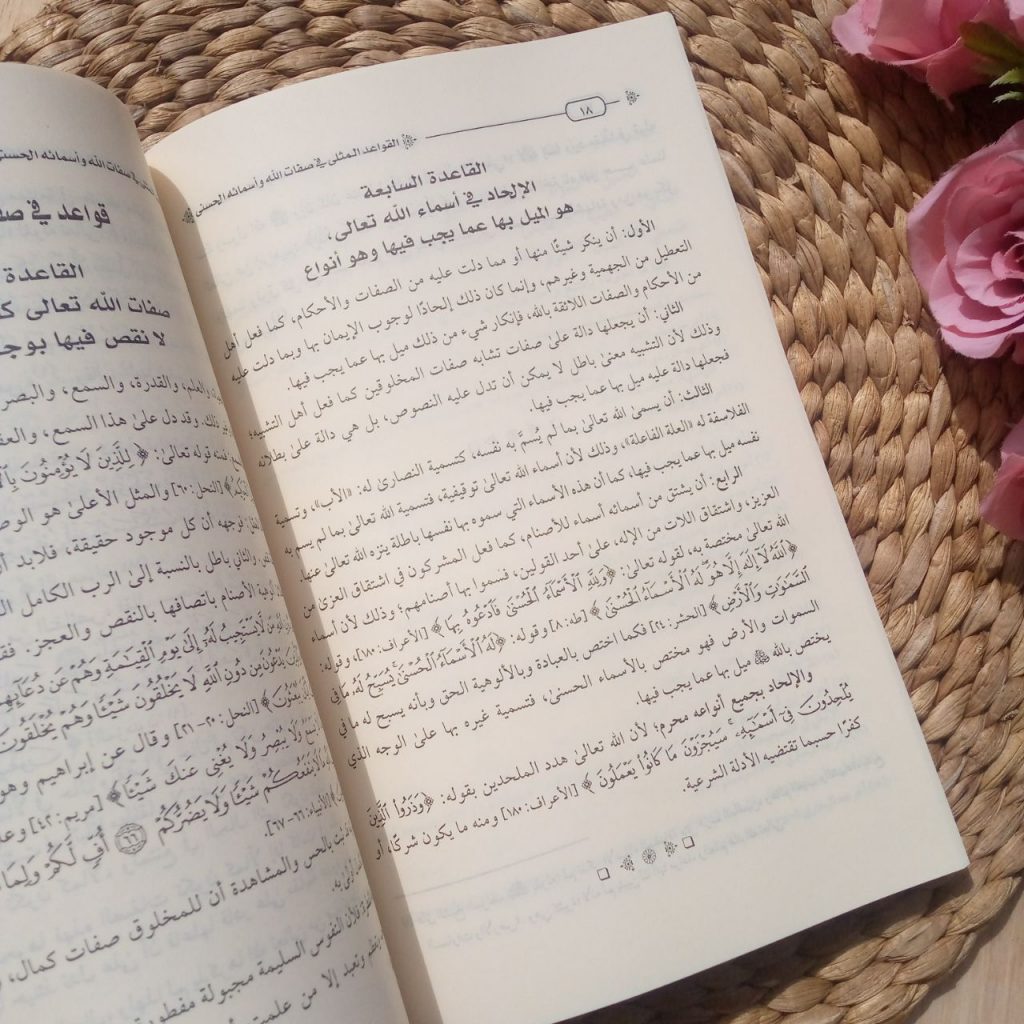 ١٨
القواعد المثلى في صفات الله وأسمائه الحسنى
القاعدة السابعة
الإلحاد في أسماء الله تعالى،
هو الميل بها عما يجب فيها وهو أنواع
الأول: أن ينكر شيئًا منها أو مما دلت عليه من الصفات والأحكام، كما فعل أهل
التعطيل من الجهمية وغيرهم، وإنما كان ذلك إلحادًا لوجوب الإيمان بها وبما دلت عليه
من الأحكام والصفات اللائقة بالله، فإنكار شيء من ذلك ميل بها عما يجب فيها.
الثاني: أن يجعلها دالة على صفات تشابه صفات المخلوقين كما فعل أهل التشبيه؛
وذلك لأن التشبيه معنى باطل لا يمكن أن تدل عليه النصوص، بل هي دالة على بطلانه
فجعلها دالة عليه ميل بها عما يجب فيها.
الثالث: أن يسمى الله تعالى بما لم يُسمِّ به نفسه، كتسمية النصارى له: «الأب»، وتسمية
الفلاسفة له «العلة الفاعلة»، وذلك لأن أسماء الله تعالى توقيفية، فتسمية الله تعالى بما لم يسم به
نفسه ميل بها عما يجب فيها، كما أن هذه الأسماء التي سموه بها نفسها باطلة ينزه الله تعالى عنها.
الرابع: أن يشتق من أسمائه أسماء للأصنام، كما فعل المشركون في اشتقاق العزى من
العزيز، واشتقاق اللات من الإله، على أحد القولين، فسموا بها أصنامهم؛ وذلك لأن أسماء
الله تعالى مختصة به، لقوله تعالى: ﴿وَلِلَّهِ الْأَسْمَاءُ الْحُسْنَىٰ فَادْعُوهُ بِهَا﴾ [الأعراف: ١٨٠]، وقوله:
﴿اللَّهُ لَا إِلَٰهَ إِلَّا هُوَ لَهُ الْأَسْمَاءُ الْحُسْنَىٰ﴾ [طه: ٨] وقوله: ﴿لَهُ الْأَسْمَاءُ الْحُسْنَىٰ يُسَبِّحُ لَهُ مَا فِي
السَّمَٰوَٰتِ وَالْأَرْضِ﴾ [الحشر: ٢٤] فكما اختص بالعبادة وبالألوهية الحق وبأنه يسبح له ما في
السموات والأرض فهو مختص بالأسماء الحسنى، فتسمية غيره بها على الوجه الذي
يختص بالله ﷻ ميل بها عما يجب فيها.
والإلحاد بجميع أنواعه محرم؛ لأن الله تعالى هدد الملحدين بقوله: ﴿وَذَرُوا الَّذِينَ
يُلْحِدُونَ فِي أَسْمَٰئِهِ سَيُجْزَوْنَ مَا كَانُوا يَعْمَلُونَ﴾ [الأعراف: ١٨٠] ومنه ما يكون شركًا، أو
كفرًا حسبما تقتضيه الأدلة الشرعية.
صفات الله وأسمائه الحسنى
قواعد في
القاعدة
صفات الله تعالى
لا نقص فيها
والعلم، والقدرة، والسمع، والبصر
ذلك. وقد دل على هذا السمع،
قوله تعالى: ﴿لِلَّذِينَ لَا يُؤْمِنُونَ
[النحل: ٦٠] والمثل الأعلى هو
فوجهه أن كل موجود حقيقة، فلابد
والثاني باطل بالنسبة إلى الرب الكامل
الأصنام باتصافها بالنقص والعجز.
لَا يَسْتَجِيبُ لَهُ إِلَىٰ يَوْمِ الْقِيَٰمَةِ وَهُمْ عَن دُعَائِهِمْ
يَدْعُونَ مِن دُونِ اللَّهِ لَا يَخْلُقُونَ شَيْئًا وَهُمْ يُخْلَقُونَ
[النحل: ٢٠-٢١] وقال عن إبراهيم وهو
وَلَا يُبْصِرُ وَلَا يُغْنِي عَنكَ شَيْئًا﴾ [مريم: ٤٢]
يَنفَعُكُمْ شَيْئًا وَلَا يَضُرُّكُمْ ٦٦ أُفٍّ لَّكُمْ وَلِمَا
[الأنبياء: ٦٦-٦٧].
بالحس والمشاهدة أن للمخلوق صفات كمال،
به.
فلأن النفوس السليمة مجبولة
وتعبد إلا من